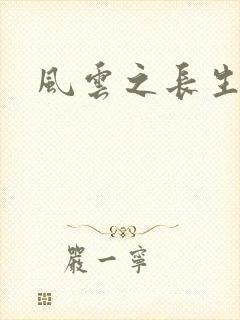 風雲之長生
嚴一寧